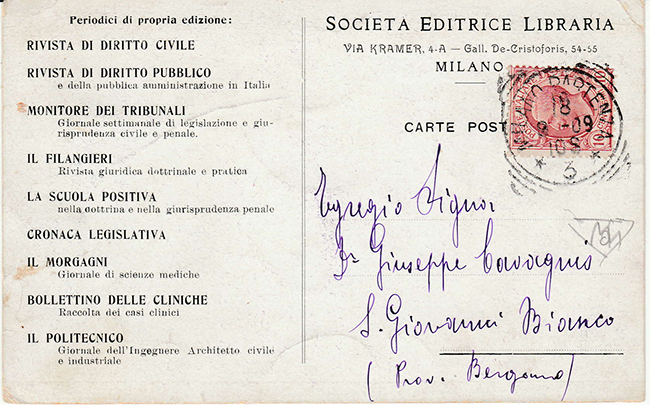 Periodici di propria edizione:
RIVISTA DI DIRITTO CIVILE
RIVISTA DI DIRITTO PUBBLICO
e della pubblica amministrazione in Italia
MONITORE DEI TRIBUNALI
Giornale settimanale di legislazione e giu-
risprudenza civile e penale.
IL FILANGIERI
Rivista giuridica dottrinale e pratica
LA SCUOLA POSITIVA
nella dottrina e nella giurisprudenza penale
CRONACA LEGISLATIVA
IL MORGAGNI
Giornale di scienze mediche
BOLLETTINO DELLE CLINICHE
Raccolta dei casi clinici
IL POLITECNICO
Giornale dell'Ingegnere Architetto civile
e industriale
SOCIETA EDITRICE LIBRARIA
VIA KRAMER, 4-A — Gall. De-Cristoforis, 54-55
MILANO
CARTE POST
MILANO PARTENZA
3
Egregio Signor
Dr Giuseppe Cavagnis
S. Giovanni Bianco
(Prov. Bergamo)